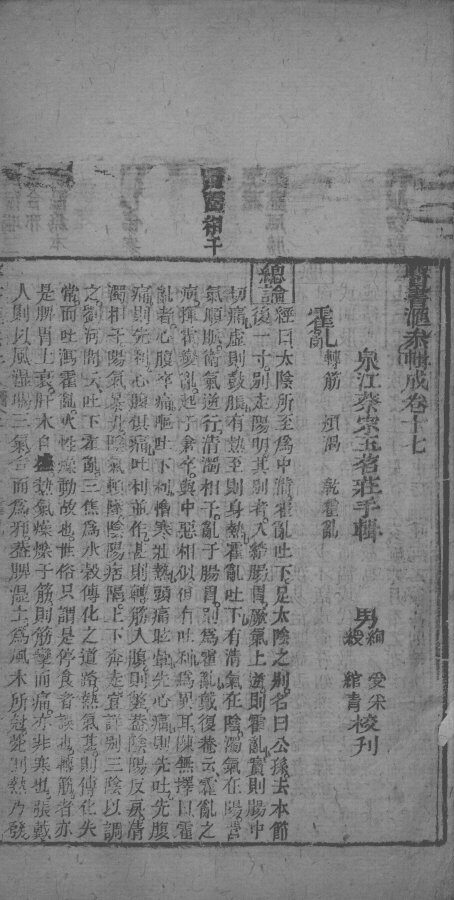 醫書滙叅輯成卷十七
泉江蔡宗玉茗莊手輯
男 絢 愛采
綬 綰青 校刊
霍亂 轉筋 煩渴 乾霍亂
總論 經曰太陰所至爲中滿霍亂吐下足太陰之別名曰公孫去本節
後一寸別走陽明其別者入絡腸胃厥氣上逆則霍亂實則腸中
切痛虛則鼓脹有熱至則身熱霍亂吐下有清氣在陰濁氣在陽營
氣順脈衛氣逆行清濁相干亂于腸胃則爲霍亂戴復菴云霍亂之
病揮霍變亂起于倉卒與中惡相似但有吐利爲異耳陳無擇曰霍
亂者心腹卒痛嘔吐下利憎寒壯熱頭痛眩暈先心痛則先吐先腹
痛則先利心腹俱痛吐利並作甚則轉筋入腹則斃蓋陰陽反戾清
濁相干陽氣暴升陰氣頓墜陰陽痞隔上下奔逸宜詳別三陰以調
之劉河間云吐下霍亂三焦爲水穀傳化之道路熱氣甚則傳化失
常而吐瀉霍亂火性燥動故也世俗只謂是停食者誤也轉筋者亦
是脾胃土衰肝木自盛熱氣燥爍于筋則筋攣而痛亦非寒也張戴
人則以風濕暍三氣合而爲邪蓋脾濕土爲風木所尅鬱則熱乃發